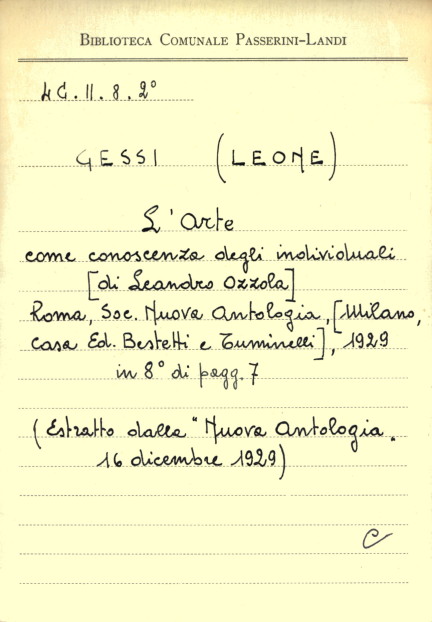 BIBLIOTECA COMUNALE PASSERINI-LANDI
4G.II.8.2°
GESSI (LEONE)
L'Arte
come conoscenza degli individuali
[di Leandro Ozzola]
Roma, Soc. Nuova Antologia, [Milano,
Casa Ed. Bestetti e Tuminelli], 1929
in 8° di pagg. 7
(Estratto dalla "Nuova Antologia"
16 dicembre 1929)
C